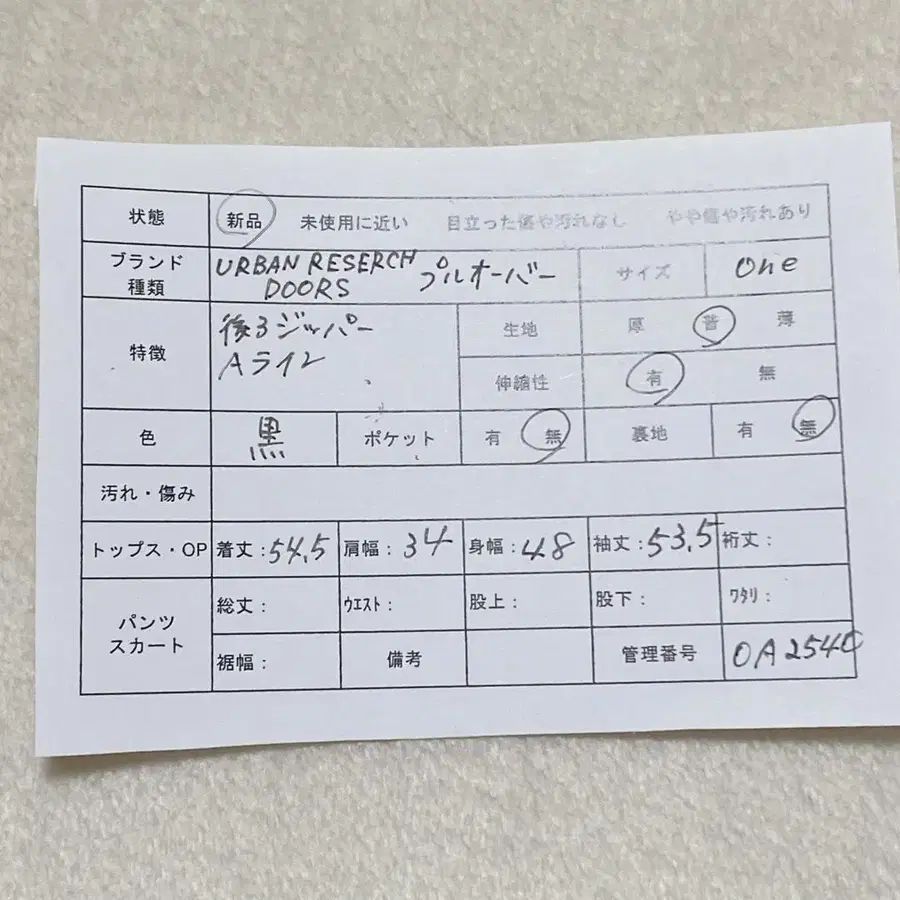 状態 新品 未使用に近い 目立った傷や汚れなし やや傷や汚れあり
ブランド 種類 URBAN RESERCH DOORS プルオーバー サイズ one
特徴 後ろジッパー Aライン
生地 厚 普 薄
伸縮性 有 無
色 黒 ポケット 有 無 裏地 有 無
汚れ・傷み
トップス・OP 着丈:54.5 肩幅:34 身幅:48 袖丈:53.5 裄丈:
パンツ スカート 総丈: ウエスト: 股上: 股下: ワタリ:
裾幅: 備考 管理番号